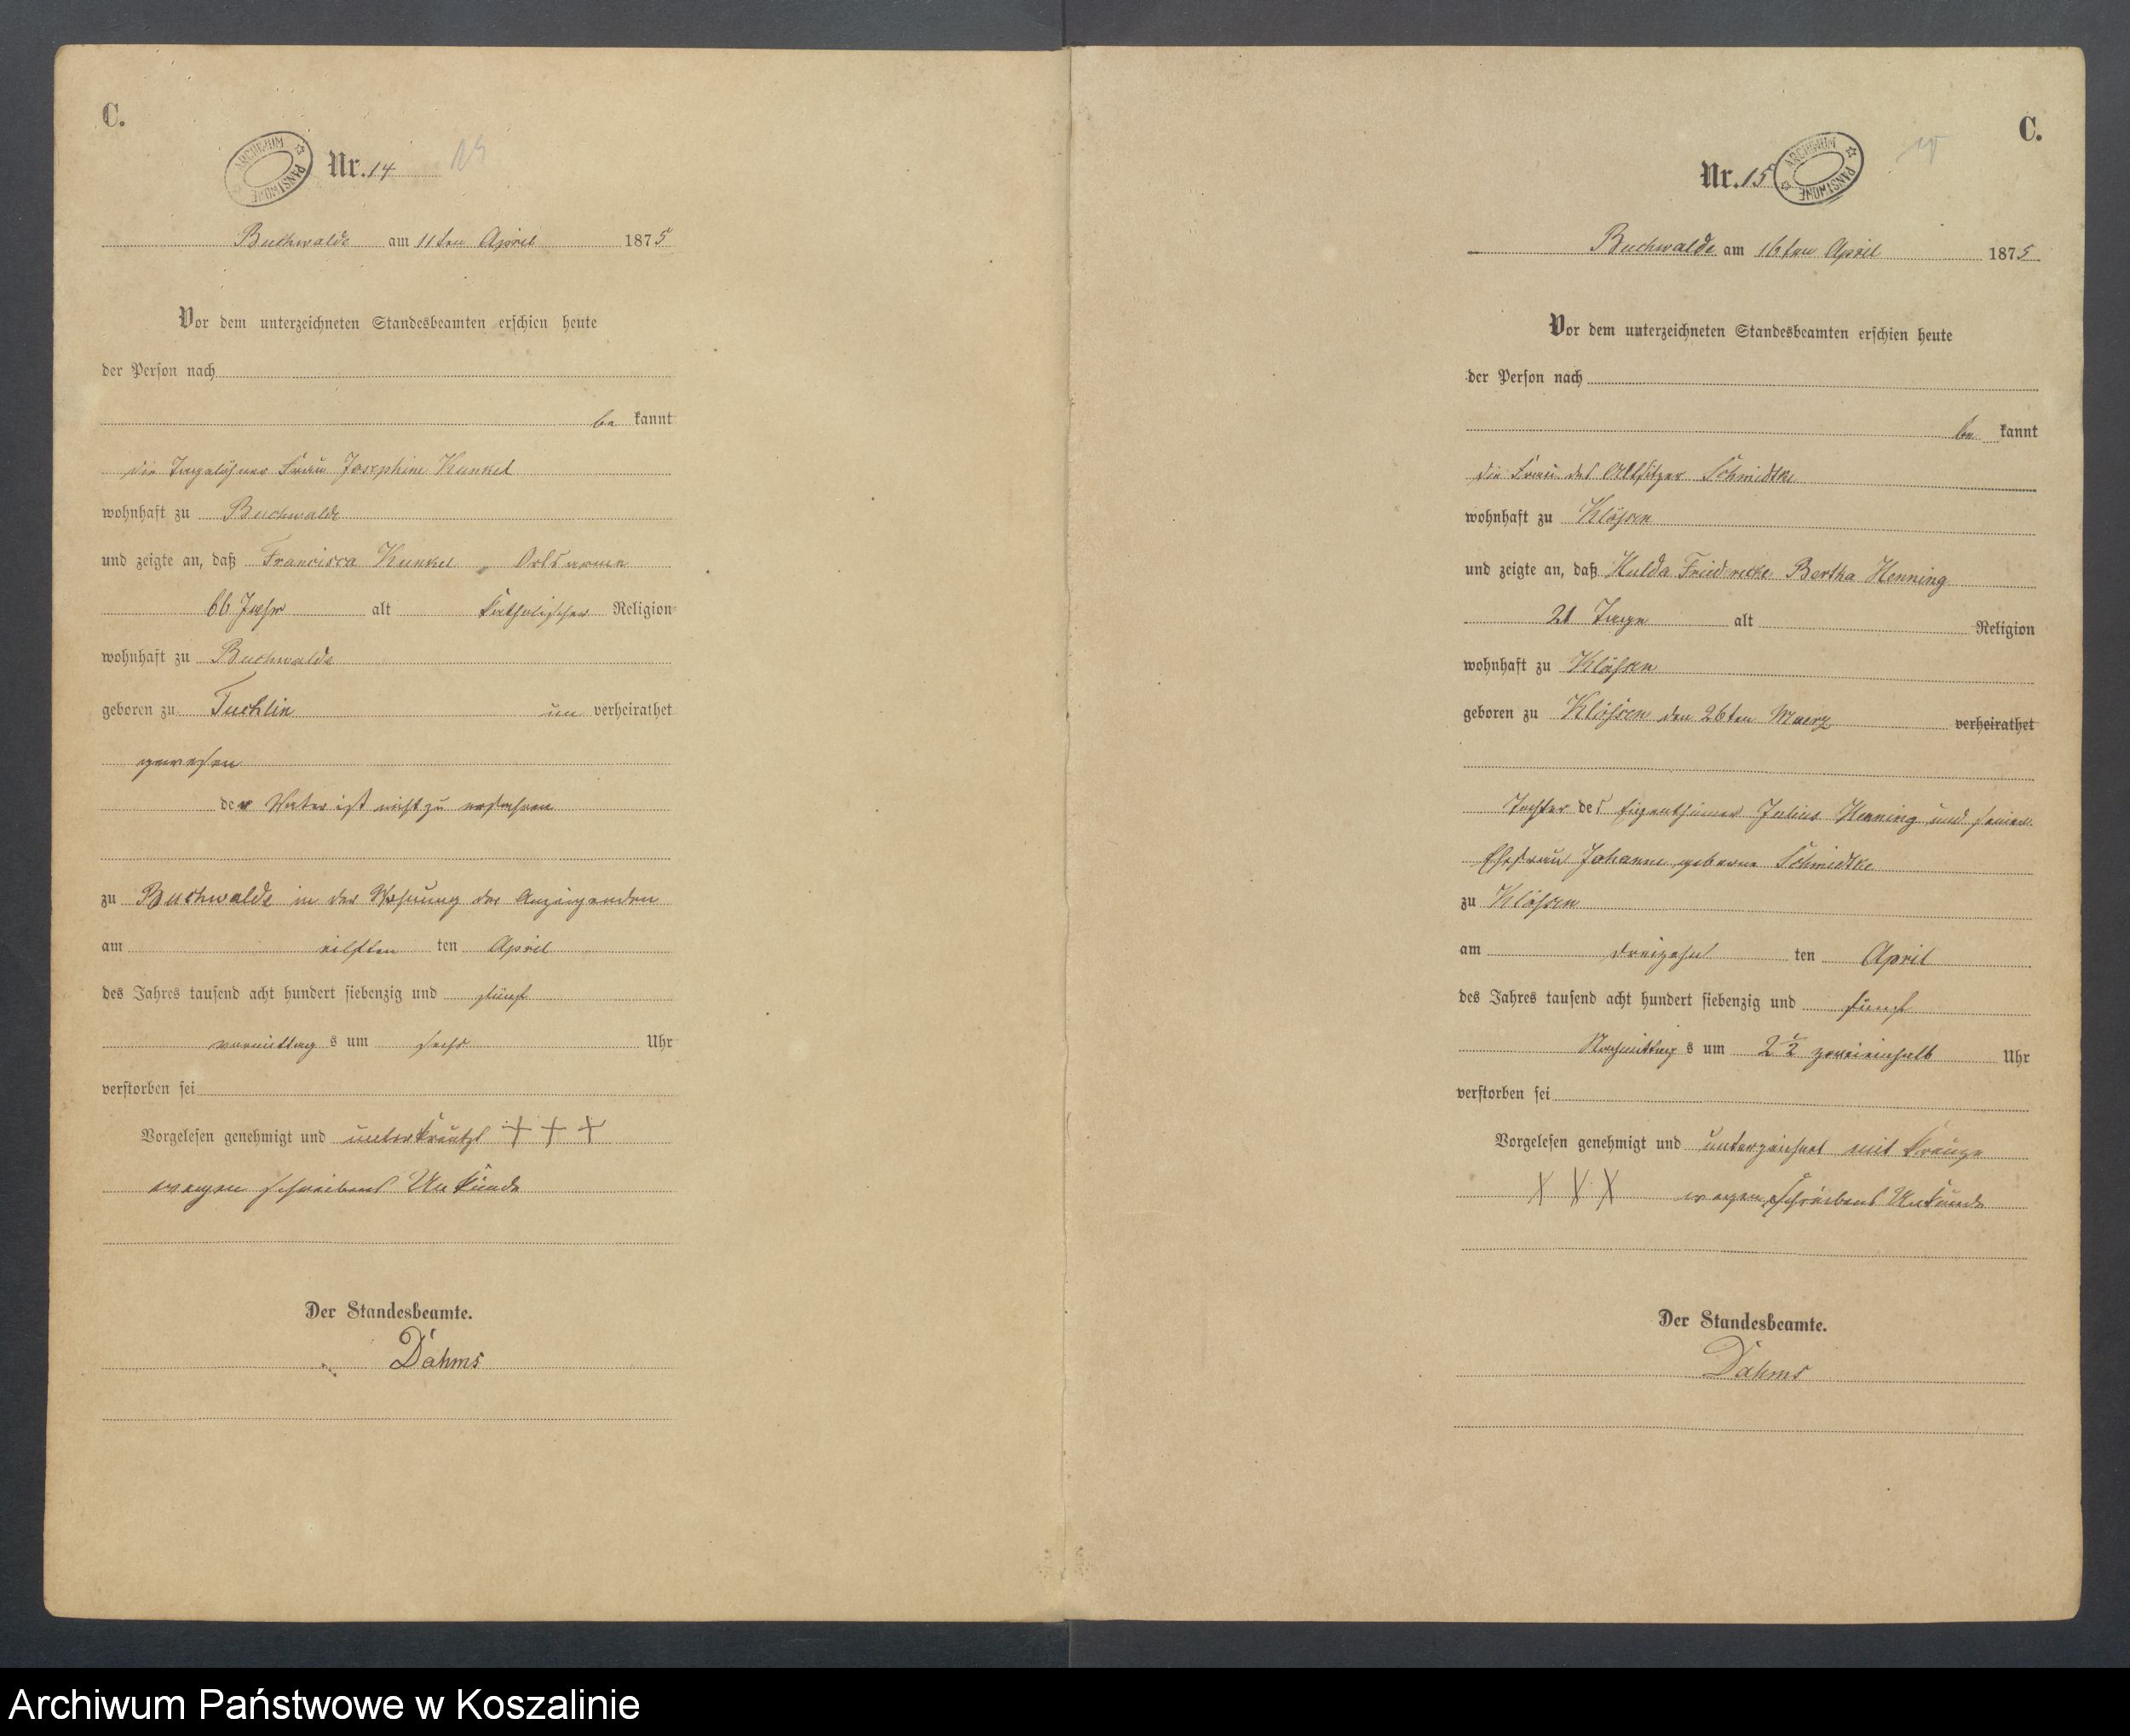 C.
ARCHIWUM PAŃSTWOWE
Nr. 14
14
Buchwalde am 11ten April 1875
Vor dem unterzeichneten Standesbeamten erschien heute
der Person nach
be kannt
die Tagelöhner Frau Josephine Kunkel
wohnhaft zu Buchwalde
und zeigte an, daß Francisca Kunkel, Ortsarme
66 Jahr alt katholischer Religion
wohnhaft zu Buchwalde
geboren zu Tuchlin un verheirathet
gewesen
der Vater ist nicht zu erfahren
zu Buchwalde in der Wohnung der Anzeigenden
am eilften ten April
des Jahres tausend acht hundert siebenzig und fünf
vormittag s um sechs Uhr
verstorben sei
Vorgelesen genehmigt und unterkreutzt + + +
wegen schreibens Unkunde
Der Standesbeamte.
Dahms
C.
Nr. 15
ARCHIWUM PAŃSTWOWE
15
Buchwalde am 16ten April 1875
Vor dem unterzeichneten Standesbeamten erschien heute
der Person nach
be kannt
die Frau des Altsitzer Schmidtke
wohnhaft zu Klössen
und zeigte an, daß Hulda Friedericke Bertha Henning
21 Tage alt Religion
wohnhaft zu Klössen
geboren zu Klössen den 26ten Maerz verheirathet
Tochter des Eigenthümer Julius Henning und seiner
Ehefrau Johanne geborne Schmidtke
zu Klössen
am dreizehn ten April
des Jahres tausend acht hundert siebenzig und fünf
Nachmittag s um 2 1/2 zweieinhalb Uhr
verstorben sei
Vorgelesen genehmigt und unterzeichnet mit Kreuze
X X X wegen schreibens Unkunde
Der Standesbeamte.
Dahms
Archiwum Państwowe w Koszalinie